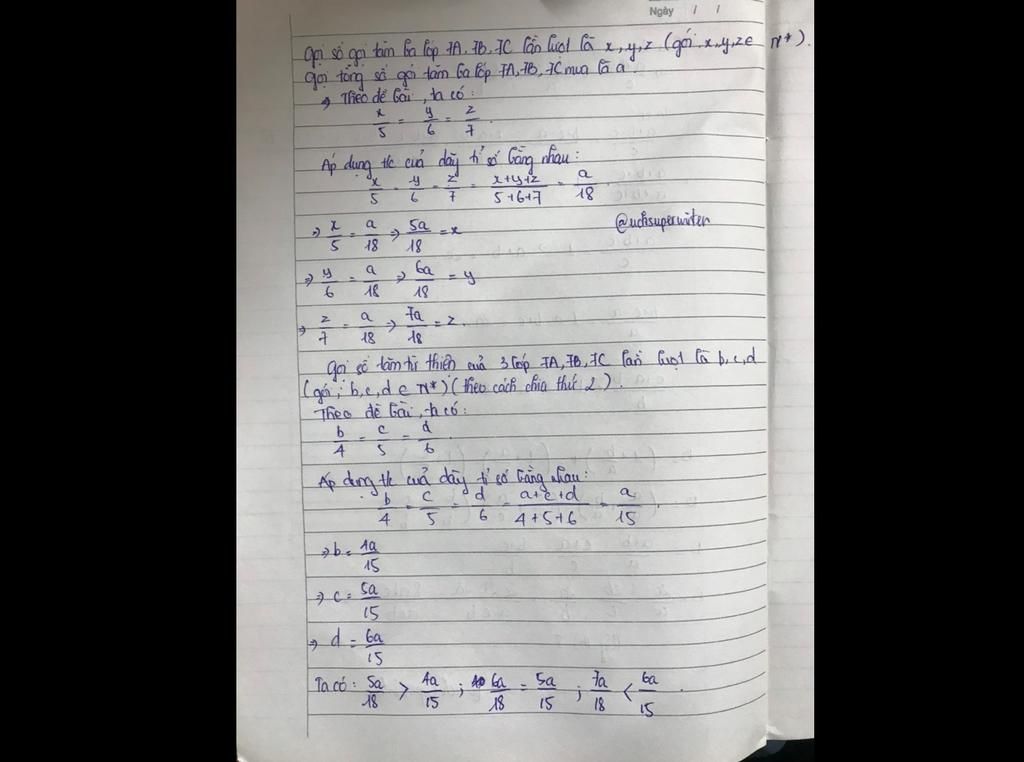 Ngày / /
Gọi số gói tăm ba lớp 7A, 7B, 7C lần lượt là x, y, z (gói, x, y, z ∈ N*).
Gọi tổng số gói tăm ba lớp 7A, 7B, 7C mua là a.
⇒ Theo đề bài, ta có:
x/5 = y/6 = z/7.
Áp dụng t/c của dãy tỉ số bằng nhau:
x/5 = y/6 = z/7 = (x+y+z)/(5+6+7) = a/18.
@uchsuperwriter
⇒ x/5 = a/18 ⇒ 5a/18 = x
⇒ y/6 = a/18 ⇒ 6a/18 = y
⇒ z/7 = a/18 ⇒ 7a/18 = z.
Gọi số tăm từ thiện của 3 lớp 7A, 7B, 7C lần lượt là b, c, d
(gói; b, c, d ∈ N*) (theo cách chia thứ 2).
Theo đề bài, ta có:
b/4 = c/5 = d/6.
Áp dụng t/c của dãy tỉ số bằng nhau:
b/4 = c/5 = d/6 = (a+c+d)/(4+5+6) = a/15.
⇒ b = 4a/15
⇒ c = 5a/15
⇒ d = 6a/15
Ta có: 5a/18 > 4a/15 ; 6a/18 = 5a/15 ; 7a/18 < 6a/15.